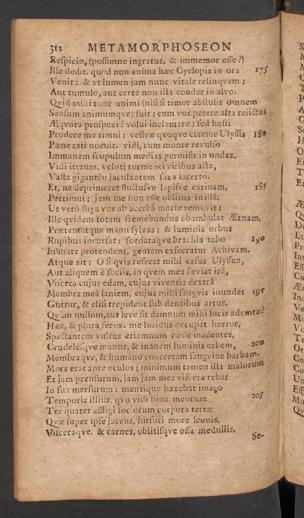 312 METAMORPHOSEON
Respicio, (possumne ingratus, & immemor esse?)
Ille dedit, quod non anima hæc Cyclopis in ora 175
Venit: & ut lumen jam nunc vitale relinqvam;
Aut tumulo, aut certe non illa condar in alvo.
Qvid mihi tunc animi (nisi si timor abstulit omnem
Sensum animumqve) fuit; cum vos petere alta relictus
Æqvora prospexi? volui inclamare: sed hosti
Prodere me timui: vestræ qvoqve clamor Ulyssis 180
Pæne rati nocuit. vidi, cum monte revulso
Immanem scopulum medias permisit in undas.
Vidi iterum, veluti tormenti viribus acta,
Vasta giganteo jaculantem saxa lacerto.
Et, ne deprimeret fluctusve lapisve carinam, 185
Pertimui; jam me non esse oblitus in illa.
Ut verò fuga vos ab acerbâ morte removit:
Ille qvidem totam fremebundus obambulat Ætnam,
Prætentatqve manu sylvas; & luminis orbus
Rupibus incursat: fœdataqve brachia tabo 190
In mare protendens, gentem exsecratur Achivam.
Atque ait: O si qvis referat mihi casus Ulyssen,
Aut aliquem è sociis, in qvem mea sæviat ira,
Viscera cujus edam, cujus viventia dextrâ
Membra mea laniem, cujus mihi sangvis inundet 195
Guttur, & elisi trepident sub dentibus artus.
Qvàm nullum, aut leve sit damnum mihi lucis ademtæ?
Hæc, & plura ferox. me luridus occupat horror,
Spectantem vultus etiamnum cæde madentes,
Crudelesqve manus, & inanem luminis orbem, 200
Membraqve, & humano concretam sangvine barbam.
Mors erat ante oculos; minimum tamen illa malorum
Et jam prensurum, jam jam mea viscera rebar
In sua mersurum: mentique hærebat imago
Temporis illius, qvo vidi bina meorum 205
Ter quater affligi sociorum corpora terræ
Qvæ super ipse jacens, hirsuti more leonis,
Visceraqve, & carnes, oblitisqve ossa medullis,
Se-